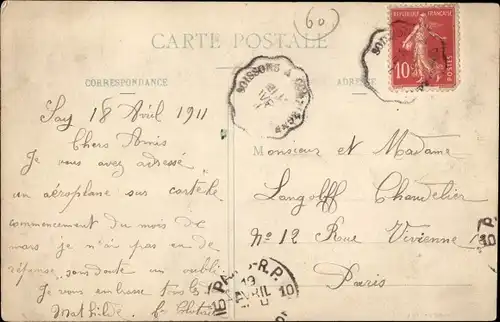 60
CARTE POSTALE
CORRESPONDANCE
ADRESSE
REPUBLIQUE FRANÇAISE
10
POSTES
SOISSONS A
18 Avril 1911
Chers Amis
Je vous avez adressé
un aéroplane sur carte le
commencement du mois de
mars je n'ai pas eu de
réponse sans doute un oubli
Je vous embrasse tous
Mathilde
Monsieur et Madame
Langolff Chandelier
No 12 Rue Vivienne
Paris
PARIS R.P.
10 19 AVRIL 10